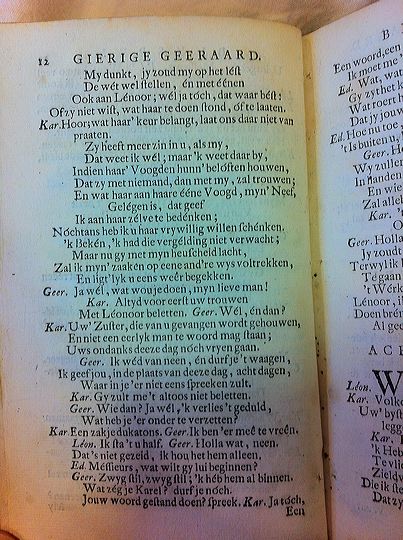 12 GIERIGE GEERAARD.
My dunkt, jy zoud my op het lést
De wét wel stellen, én met éénen
Ook aan Lénoor; wél ja tóch, dat waar bést;
Of zy niet wist, wat haar te doen stond, óf te laaten.
Kar. Hoor; wat haar' keur belangt, laat ons daar niet van
praaten.
Zy heeft meer zin in u, als my,
Dat weet ik wél; maar 'k weet daar by,
Indien haar' Voogden hunn' belóften houwen,
Dat zy met niemand, dan met my, zal trouwen;
En wat haar aan haare ééne Voogd, myn' Neef,
Gelégen is, dat geef
Ik aan haar zélve te bedénken;
Nóchtans heb ik u haar vrywillig willen schénken.
'k Bekén, 'k had die vergélding niet verwacht;
Maar nu gy met myn heusheid lacht,
Zal ik myn' zaaken op eene and're wys voltrekken,
En ligt'lyk u eens wéér begekken.
Geer. Ja wél, wat wou je doen, myn lieve man!
Kar. Altyd voor eerst uw trouwen
Met Léonoor beletten. Geer. Wél, én dan?
Kar. Uw' Zuster, die van u gevangen wordt gehouwen,
En niet een eerlyk man te woord mag staan;
Uws ondanks deeze dag nóch vryen gaan.
Geer. Ik wéd van neen, én durf je 't waagen,
Ik geef jou, in de plaats van deeze dag, acht daagen,
Waar in je 'er niet eens spreeken zult.
Kar. Gy zult me 't altoos niet beletten.
Geer. Wie dan? Ja wél, 'k verlies 't geduld,
Wat heb je 'er onder te verzetten?
Kar. Een zakje dukatons. Geer. Ik ben 'er meê te vreên.
Léon. Ik sta 't u half. Geer. Holla wat, neen.
Dat 's niet gezeid, ik hou het hem alleen,
Ed. Méssieurs, wat wilt gy lui beginnen?
Geer. Zwyg stil, zwyg stil; 'k héb hem al binnen.
Wat zég je Karel? durf je nóch.
Jouw woord gestand doen? spreek. Kar. Ja tóch,
Een
B
Een woord, een
Ik moet me
Ed. Wat, wat
Gy zyt het k
Wat roert h
Dat jy jouw
Ed. Hoe nu toe,
't Is buiten u,
Geer. H
Wy zullen
In handen
En wie
Zal alle
Kar. '
O
Geer. Holla
Jy zoudt
Terwyl ik
Tégen aa
't Wérk
Lénoor, i
Doen brén
Al geef
ACT
Léon. W
Kar. Volko
Uw' byst
legg
Kar.
'k Heb
Te vlie
Zieldv
Die ik ste
Dat zy